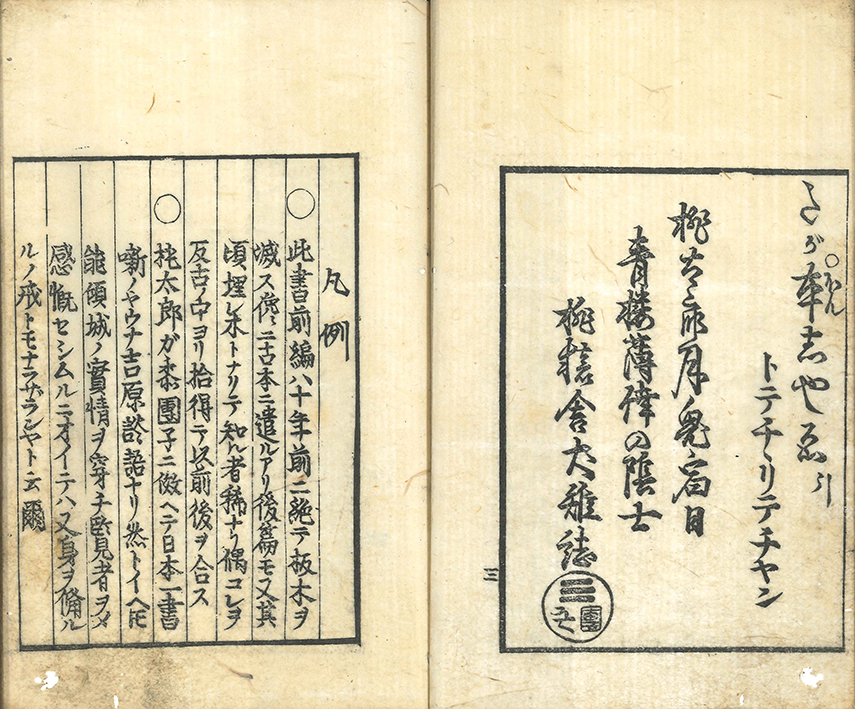 トテチリテチヤン
桃太郎月鬼宿日
青楼薄律の隂士
桃舎大雅誌
三
凡例
○此書前編ハ十年前ニ絶テ板木ヲ
滅ス僕ニ古本ニ遺ルアリ後篇モ又其
頃埋レ木トナリテ知ル者稀ナリ偶コレヲ
反古ノ中ヨリ拾得テ以前後ヲ合ス
○桃太郎ガ黍團子ニ傚ヘテ日本一書
噺ノヤウナ吉原談語ナリ然トイヘ𪜈
能傾城ノ實情ヲ穿チ臥見者ヲメ
感慨セシムルニオイテハ又身ヲ脩ル
ルノ戒トモナラザランヤト云爾